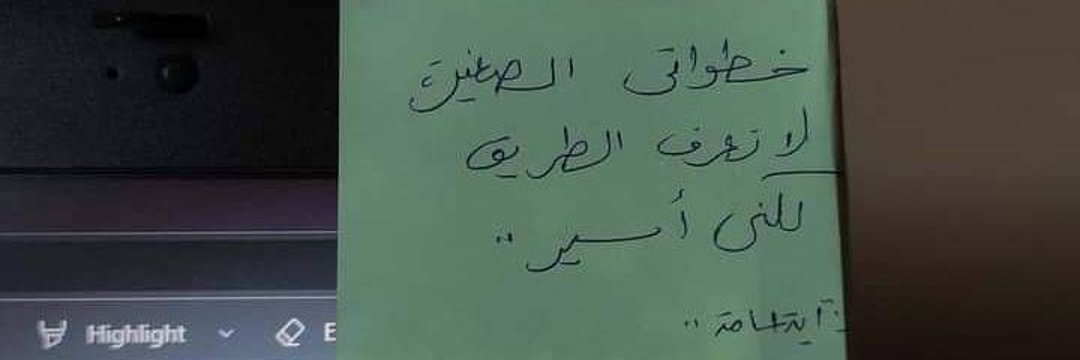 خطواتى الصغيرة
لا تعرف الطريق
لكنى أسير ..
آية
Highlight
E